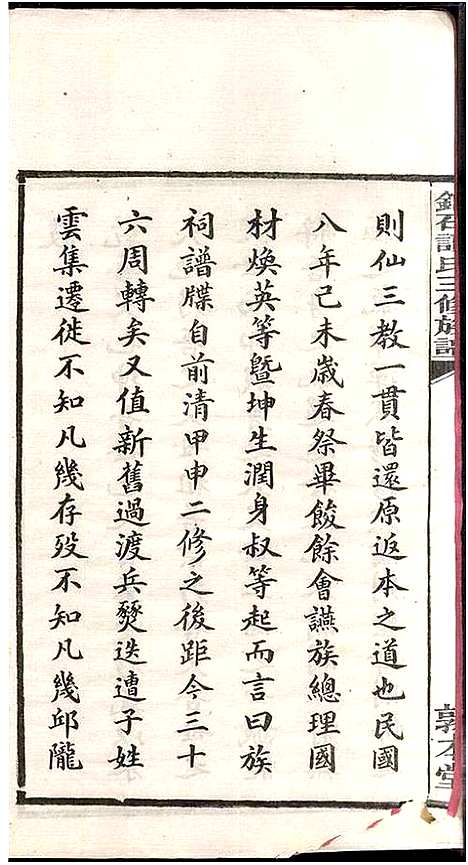 石譚氏三修族譜
敦本堂
則仙三教一貫皆還原返本之道也民國
八年己未歲春祭畢餕餘會讌族總理國
材煥英等暨坤生潤身叔等起而言曰族
祠譜牒自前清甲申二修之後距今三十
六周轉矣又值新舊過渡兵燹迭遭子姓
雲集遷徙不知凡幾存歿不知凡幾邱隴